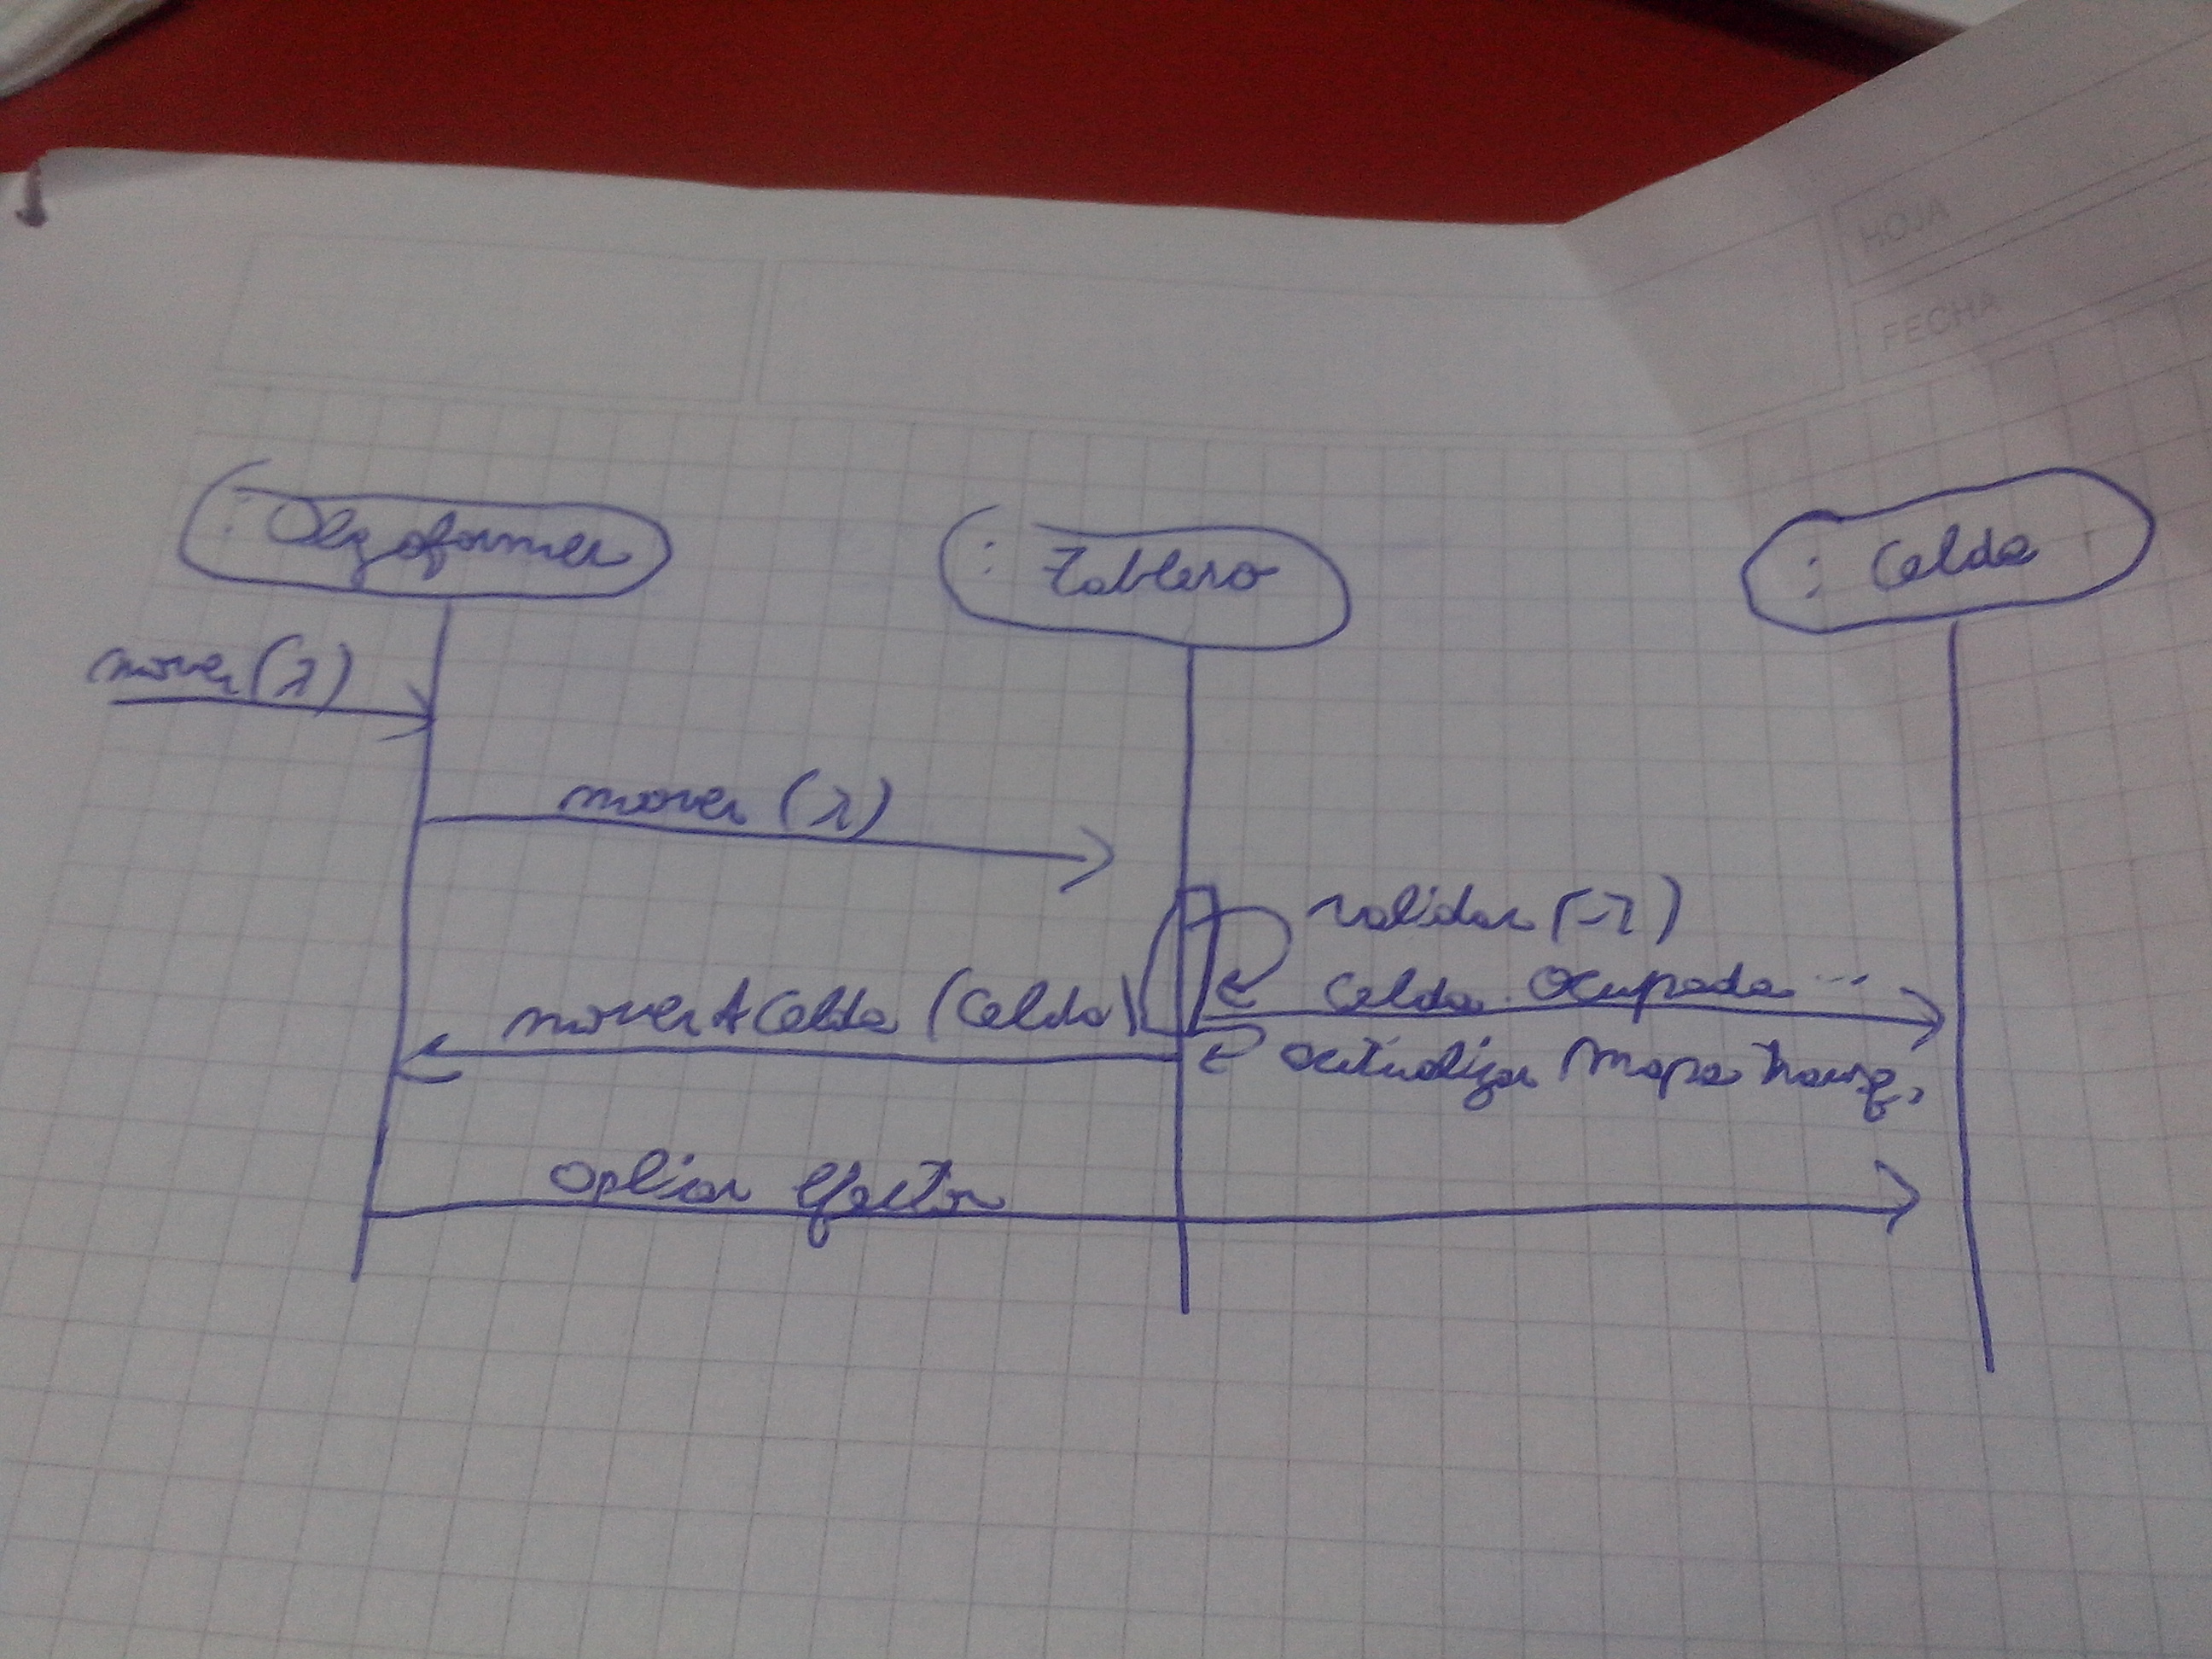 HOJA
FECHA
: Algoformer
: Tablero
: Celda
mover(λ)
mover (λ)
validar (-λ)
Celda. Ocupada ...
moverACelda (Celda)
actualizar Mapa Transf.
aplicar efector